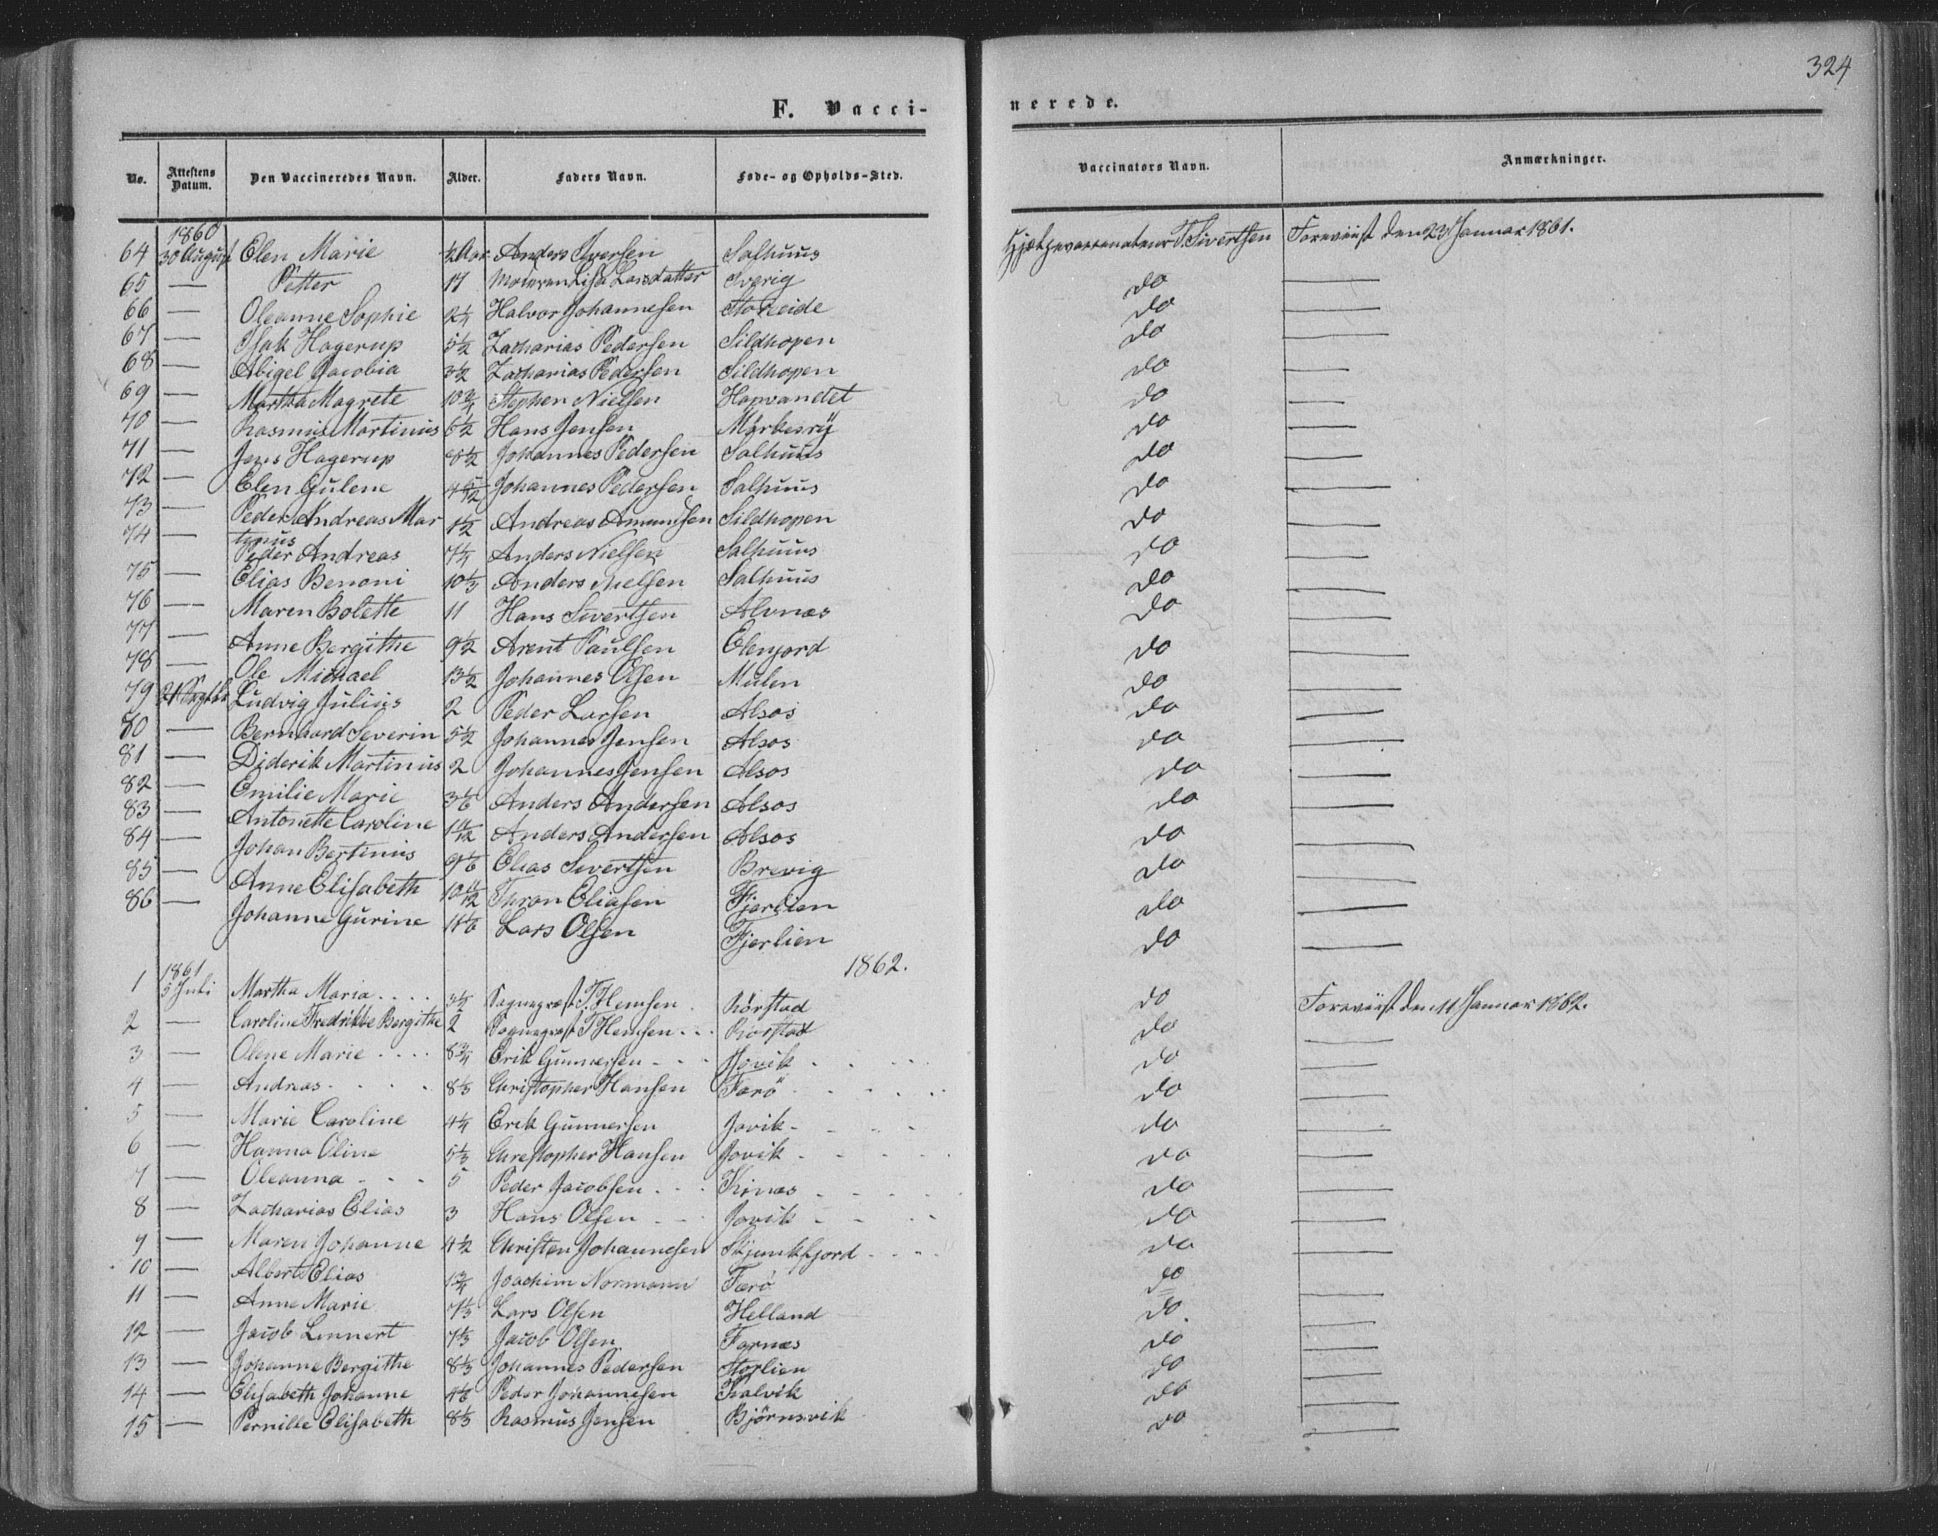 324
F. Vaccinerede.
No. Attestens Datum. Den Vaccineredes Navn. Alder. Faders Navn. Føde- og Opholds-Sted. Vaccinators Navn. Anmærkninger.
1860
64 30 August Elen Marie ½ Aar Anders Iversen Salhuus T. Sivertsen Foreviist den 23 Januar 1861.
65 — Petter 17 Moderen Lisa Larsdatter Sverig do —
66 — Oleanne Sophie 2¼ Halvor Johannesen Storeide do —
67 — Isak Hagerup 5½ Zacharias Pedersen Sildhopen do —
68 — Abigel Jacobia 3½ Zacharias Pedersen Sildhopen do —
69 — Martha Magrete 10¾ Stephen Nielsen Hopvandet do —
70 — Rasmus Martinus 6½ Hans Jensen do —
71 — Jens Hagerup 8½ Johannes Pedersen Salhuus do —
72 — Elen Gulene 4 5/12 Johannes Pedersen Salhuus do —
73 — Peder Andreas Martinus 1½ Andreas Amundsen Sildhopen do —
74 — Peder Andreas 7¼ Anders Nielsen Salhuus do —
75 — Elias Benoni 10⅓ Anders Nielsen Salhuus do —
76 — Maren Bolette 11 Hans Sivertsen Alvnæs do —
77 — Anne Bergithe 9½ Arent Paulsen do —
78 — Ole Michael 13½ Johannes Olsen Mulen do —
79 Ludvig Julius 2 Peder Larsen Alsos do —
80 — Bernhard Severin 5½ Johannes Jensen Alsos do —
81 — Diderik Martinus 2 Johannes Jensen Alsos do —
82 — Emilie Marie 3⅙ Anders Andersen Alsos do —
83 — Antonette Caroline 1 11/12 Anders Andersen Alsos do —
84 — Johan Bertinus 9⅙ Elias Sivertsen Brevig do —
85 — Anne Elisabeth 10 11/12 Thron Eliasen Fjerlien do —
86 — Johanne Gurine 11⅙ Lars Olsen Fjerlien do —
1862.
1861
1 5 Juli Martha Maria 3½ Sognepræst T. Hemsen Rørstad do Foreviist den 11 Januar 1862.
2 — Caroline Fredrikke Bergithe 2 Sognepræst T. Hemsen Rørstad do —
3 — Olene Marie 8¾ Erik Gunnersen Jovik do —
4 — Andreas 8⅓ Christopher Hansen Færö do —
5 — Marie Caroline 4¼ Erik Gunnersen Jovik do —
6 — Hanna Oline 5⅓ Christopher Hansen Jovik do —
7 — Oleanna 5 Peder Jacobsen Kinæs do —
8 — Zacharias Elias 3 Hans Olsen Jovik do —
9 — Maren Johanne 4½ Christen Johannesen Skjunkfjord do —
10 — Albert Elias 1¾ Joachim Normann Færö do —
11 — Anne Marie 7⅓ Lars Olsen Helland do —
12 — Jacob Lennert 7⅓ Jacob Olsen Farnæs do —
13 — Johanne Bergithe 8⅓ Johannes Pedersen Storlien do —
14 — Elisabeth Johanne 4⅙ Peder Johannesen Kalvik do —
15 — Pernille Elisabeth 8⅓ Rasmus Jensen Bjørnsvik do —